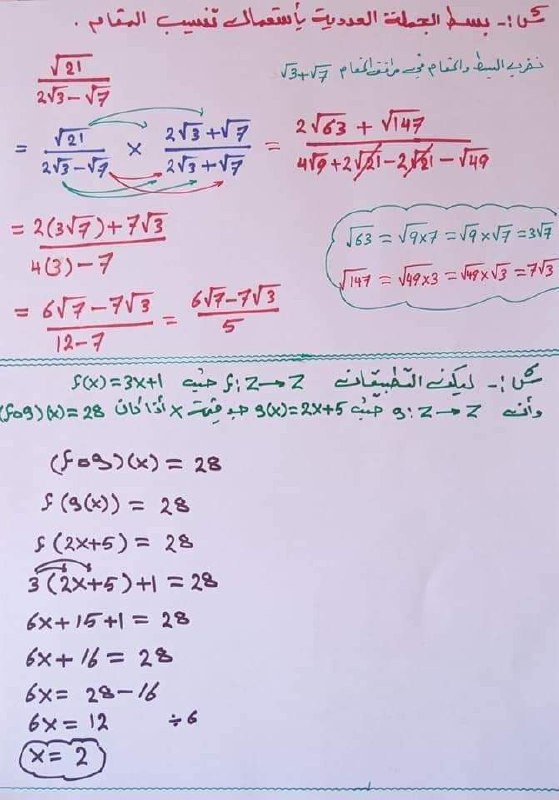 س/:- بسط الجملة العددية بأستعمال تنسيب المقام .
√21 / 2√3-√7
نضرب البسط والمقام في مرافق المقام √3+√7
= √21 / 2√3-√7 × 2√3+√7 / 2√3+√7 = 2√63 + √147 / 4√9+2√21-2√21-√49
= 2(3√7)+7√3 / 4(3)-7
√63 = √9×7 = √9×√7 = 3√7
√147 = √49×3 = √49×√3 = 7√3
= 6√7-7√3 / 12-7 = 6√7-7√3 / 5
س/:- ليكن التطبيقات f: Z→Z حيث f(x)=3x+1
وأن g: Z→Z حيث g(x)=2x+5 جد قيمة x أذا كان (fog)(x)=28
(fog)(x) = 28
f(g(x)) = 28
f(2x+5) = 28
3(2x+5)+1 = 28
6x+15+1 = 28
6x+16 = 28
6x = 28-16
6x = 12 ÷6
x = 2